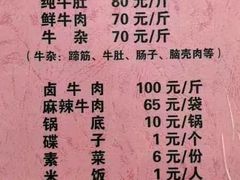 纯牛肚 80 元/斤
鲜牛肉 70 元/斤
牛杂 70 元/斤
(牛杂:蹄筋、牛肚、肠子、脑壳肉等)
卤牛肉 100 元/斤
麻辣牛肉 65 元/袋
锅底 10 元/锅
碟子 1 元/个
素菜 6 元/份
米饭 1 元/人